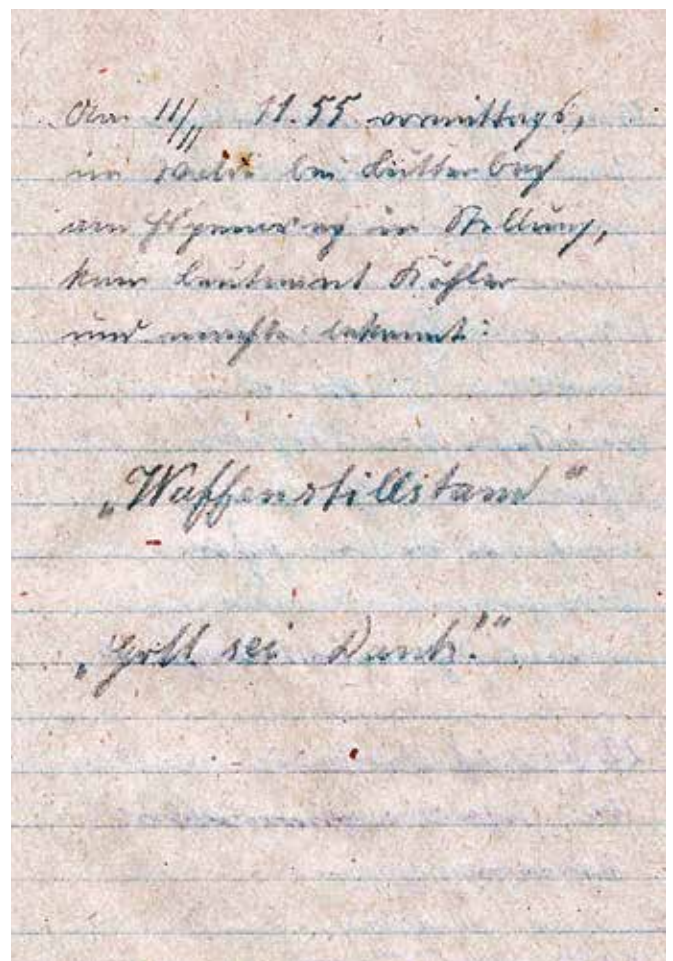 Am 11/11 11.55 vormittags,
im Walde bei Lutterbach
am in Stellung,
kam Leutnant Köhler
und machte bekannt:
„Waffenstillstand"
„Gott sei Dank!"